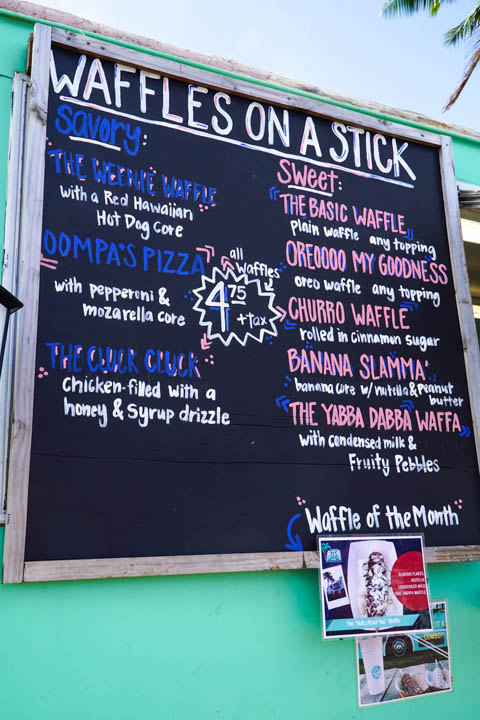 WAFFLES ON A STICK
savory:
THE WEENIE WAFFLE
with a Red Hawaiian
Hot Dog core
OOMPA'S PIZZA
with pepperoni &
mozarella core
THE CLUCK CLUCK
chicken-filled with a
honey & syrup drizzle
all
waffles
4.75
+tax
sweet:
THE BASIC WAFFLE
plain waffle any topping
OREOOOO MY GOODNESS
oreo waffle any topping
CHURRO WAFFLE
rolled in cinnamon sugar
BANANA SLAMMA'
banana core w/ nutella & peanut
butter
THE YABBA DABBA WAFFA
with condensed milk &
Fruity Pebbles
Waffle of the Month
ALMOND FLAKES
NUTELLA
CONDENSED MILK
ONE HAPPY WAFFLE
The "Nutty About You" Waffle
COMBO!